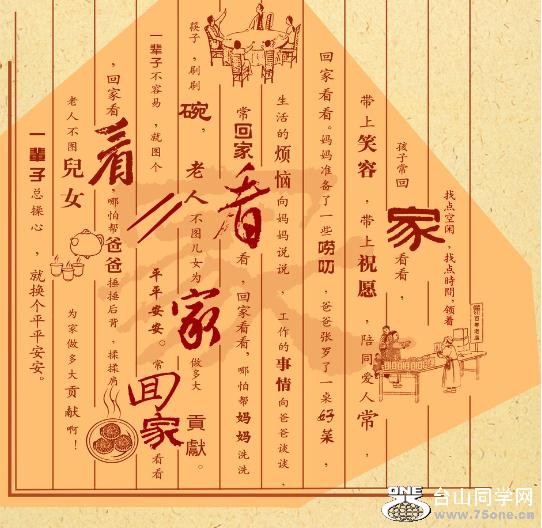 找点空闲，找点時間，领着
孩子常回家看看，
带上笑容，带上祝愿，陪同爱人常，
回家看看。妈妈准备了一些唠叨，爸爸张罗了一桌好菜，
生活的烦恼向妈妈说说，工作的事情向爸爸谈谈，
常回家看看，回家看看，哪怕帮妈妈洗洗
筷子，刷刷碗，老人不图儿女为家做多大貢獻。
一辈子不容易，就图个平平安安。常回家看看
，回家看看，哪怕帮爸爸捶捶后背，揉揉肩
老人不图兒女为家做多大贡献啊！
一辈子总操心，就换个平平安安。
ONE
台山同学网
www.75one.cn